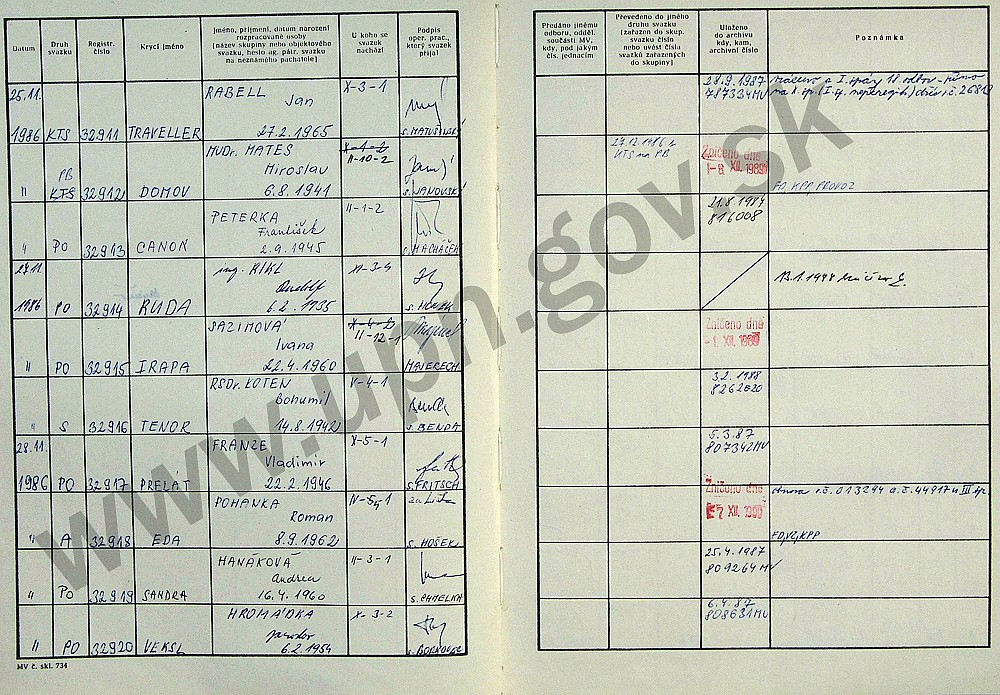 Datum
Druh svazku
Registr. číslo
Krycí jméno
Jméno, příjmení, datum narození
rozpracované osoby
(název skupiny nebo objektového
svazku, heslo ag. pátr. svazku
na neznámého pachatele)
U koho se
svazek
nachází
Podpis
oper. prac.,
který svazek
přijal
25.11.
1986 KTS 32911 TRAVELLER
RABELL
Jan
27.2.1965
X-3-1
PB
" KTS 32912 DOMOV
MUDr. MATES
Miroslav
6.8.1941
X-4-2
II-10-2
s. JANOVSKÝ
" PO 32913 CANON
PETERKA
František
2.9.1945
II-1-2
s. MACHÁČEK
27.11.
1986 PO 32914 RUDA
ing. RIKL
Rudolf
6.2.1935
XI-3-4
" PO 32915 IRAPA
SAZIMOVÁ
Ivana
22.4.1960
X-4-2
II-12-1
" S 32916 TENOR
RSDr. KOTEN
Bohumil
14.8.1942
V-4-1
s. BENDA
28.11.
1986 PO 32917 PRELÁT
FRANZE
Vladimir
22.2.1946
X-5-1
s. FRITSCH
" A 32918 EDA
POHANKA
Roman
8.9.1962
s. HOŠEK
" PO 32919 SANDRA
HANÁKOVÁ
Andrea
16.4.1960
II-3-1
s. CHMELKA
" PO 32920 VEKSL
HROMÁDKA
Jaroslav
6.2.1954
X-3-2
MV č. skl. 734
Předáno jinému
odboru, odděl.
součásti MV,
kdy, pod jakým
čís. jednacím
Převedeno do jiného
druhu svazku
(zařazen do skup.
svazku číslo
nebo uvést čísla
svazků zařazených
do skupiny)
Uloženo
do archivu
kdy, kam,
archivní číslo
Poznámka
28.9.1987
787334MV
KTS na PB
Zničeno dne
-8. XII. 1989
FO, KPP, PROVOZ
816008
13.1.1988
Zničeno dne
-1. XII. 1989
3.2.1988
5.3.87
807342MV
Zničeno dne
XII. 1989
obnova r.č. 013294 a.č. 44917
25.4.1987
809264MV
6.4.87
808631MV
www.upn.gov.sk